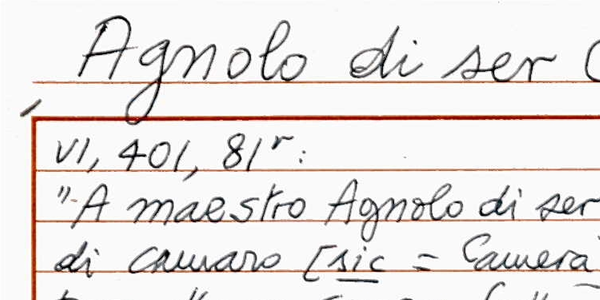 Agnolo di ser
VI, 401, 81r:
"A maestro Agnolo di ser
di camaro [sic = Camera